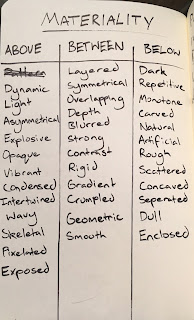 MATERIALITY
ABOVE
Dynamic
Light
Asymmetrical
Explosive
Opaque
Vibrant
Condensed
Intertwined
Wavy
Skeletal
Pixelated
Exposed
BETWEEN
Layered
Symmetrical
Overlapping
Depth
Blurred
Strong
Contrast
Rigid
Gradient
Crumpled
Geometric
Smooth
BELOW
Dark
Repetitive
Monotone
Carved
Natural
Artificial
Rough
Scattered
Concaved
Seperated
Dull
Enclosed